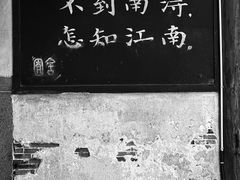 不到南浔，
怎知江南。